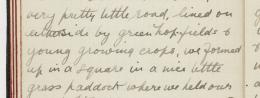 very pretty little road, lined on
either side by green hop-fields &
young growing crops, we formed
up in a square in a nice little
grass paddock where we held our